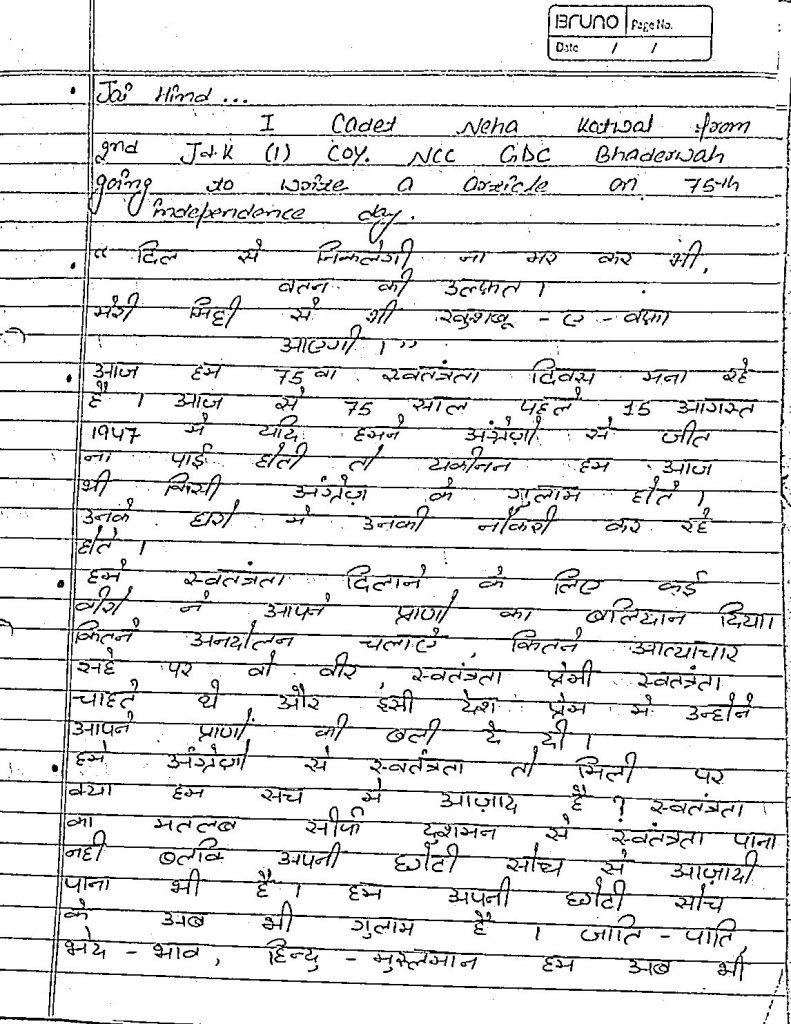 BRUNO Page No.
Date / /
Jai Hind ...
I Cadet Neha Katwal from
2nd J&K (1) COY. NCC GDC Bhaderwah
going to write a article on 75th
independence day.
“ दिल से निकलेगी ना मर कर भी,
वतन की उल्फत ।
मेरी मिट्टी से भी खुशबू - ए - वफा
आएगी । ”
आज हम 75 वा स्वतंत्रता दिवस मना रहे
है । आज से 75 साल पहले 15 आगस्त
1947 मे यदि हमने अंग्रेज़ो से जीत
ना पाई होती तो यकीनन हम आज
भी किसी अंग्रेज़ के गुलाम होते ।
उनके घरो मे उनकी नौकरी कर रहे
होते ।
हमे स्वतंत्रता दिलाने के लिए कई
वीरो ने आपने प्राणो का बलिदान दिया।
कितने अनदोलन चलाऐ, कितने आत्याचार
सहे पर वो वीर, स्वतंत्रता प्रेमी स्वतंत्रता
चाहते थे और इसी देश प्रेम मे उन्होने
आपने प्राणों की बली दे दी ।
हमे अंग्रेज़ो से स्वतंत्रता तो मिली पर
क्या हम सच मे आज़ाद है ? स्वतंत्रता
का मतलब सीर्फ दुशमन से स्वतंत्रता पाना
नही बलकि अपनी छोटी सोच से आज़ादी
पाना भी है । हम अपनी छोटी सोच
के अब भी गुलाम है । जाति - पाति,
भेद - भाव, हिन्दु - मुस्लमान हम अब भी